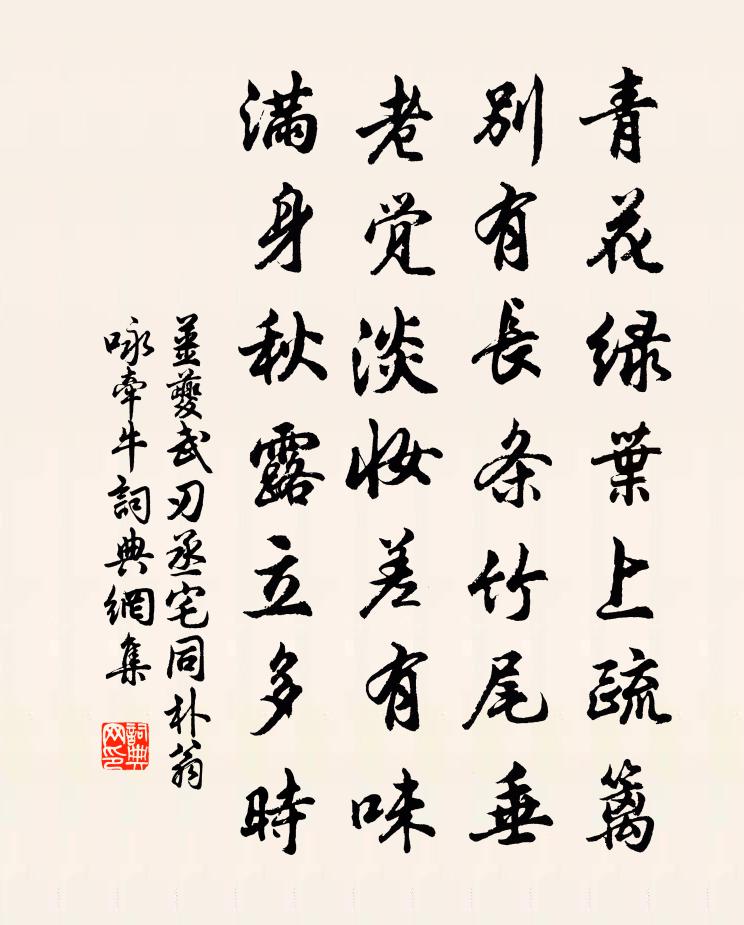 青花绿葉上疏篱
别有長条竹尾垂
老觉淡妆差有味
满身秋露立多時
薑夔武刃丞宅同朴翁
咏牵牛詞典網集
詞典网印